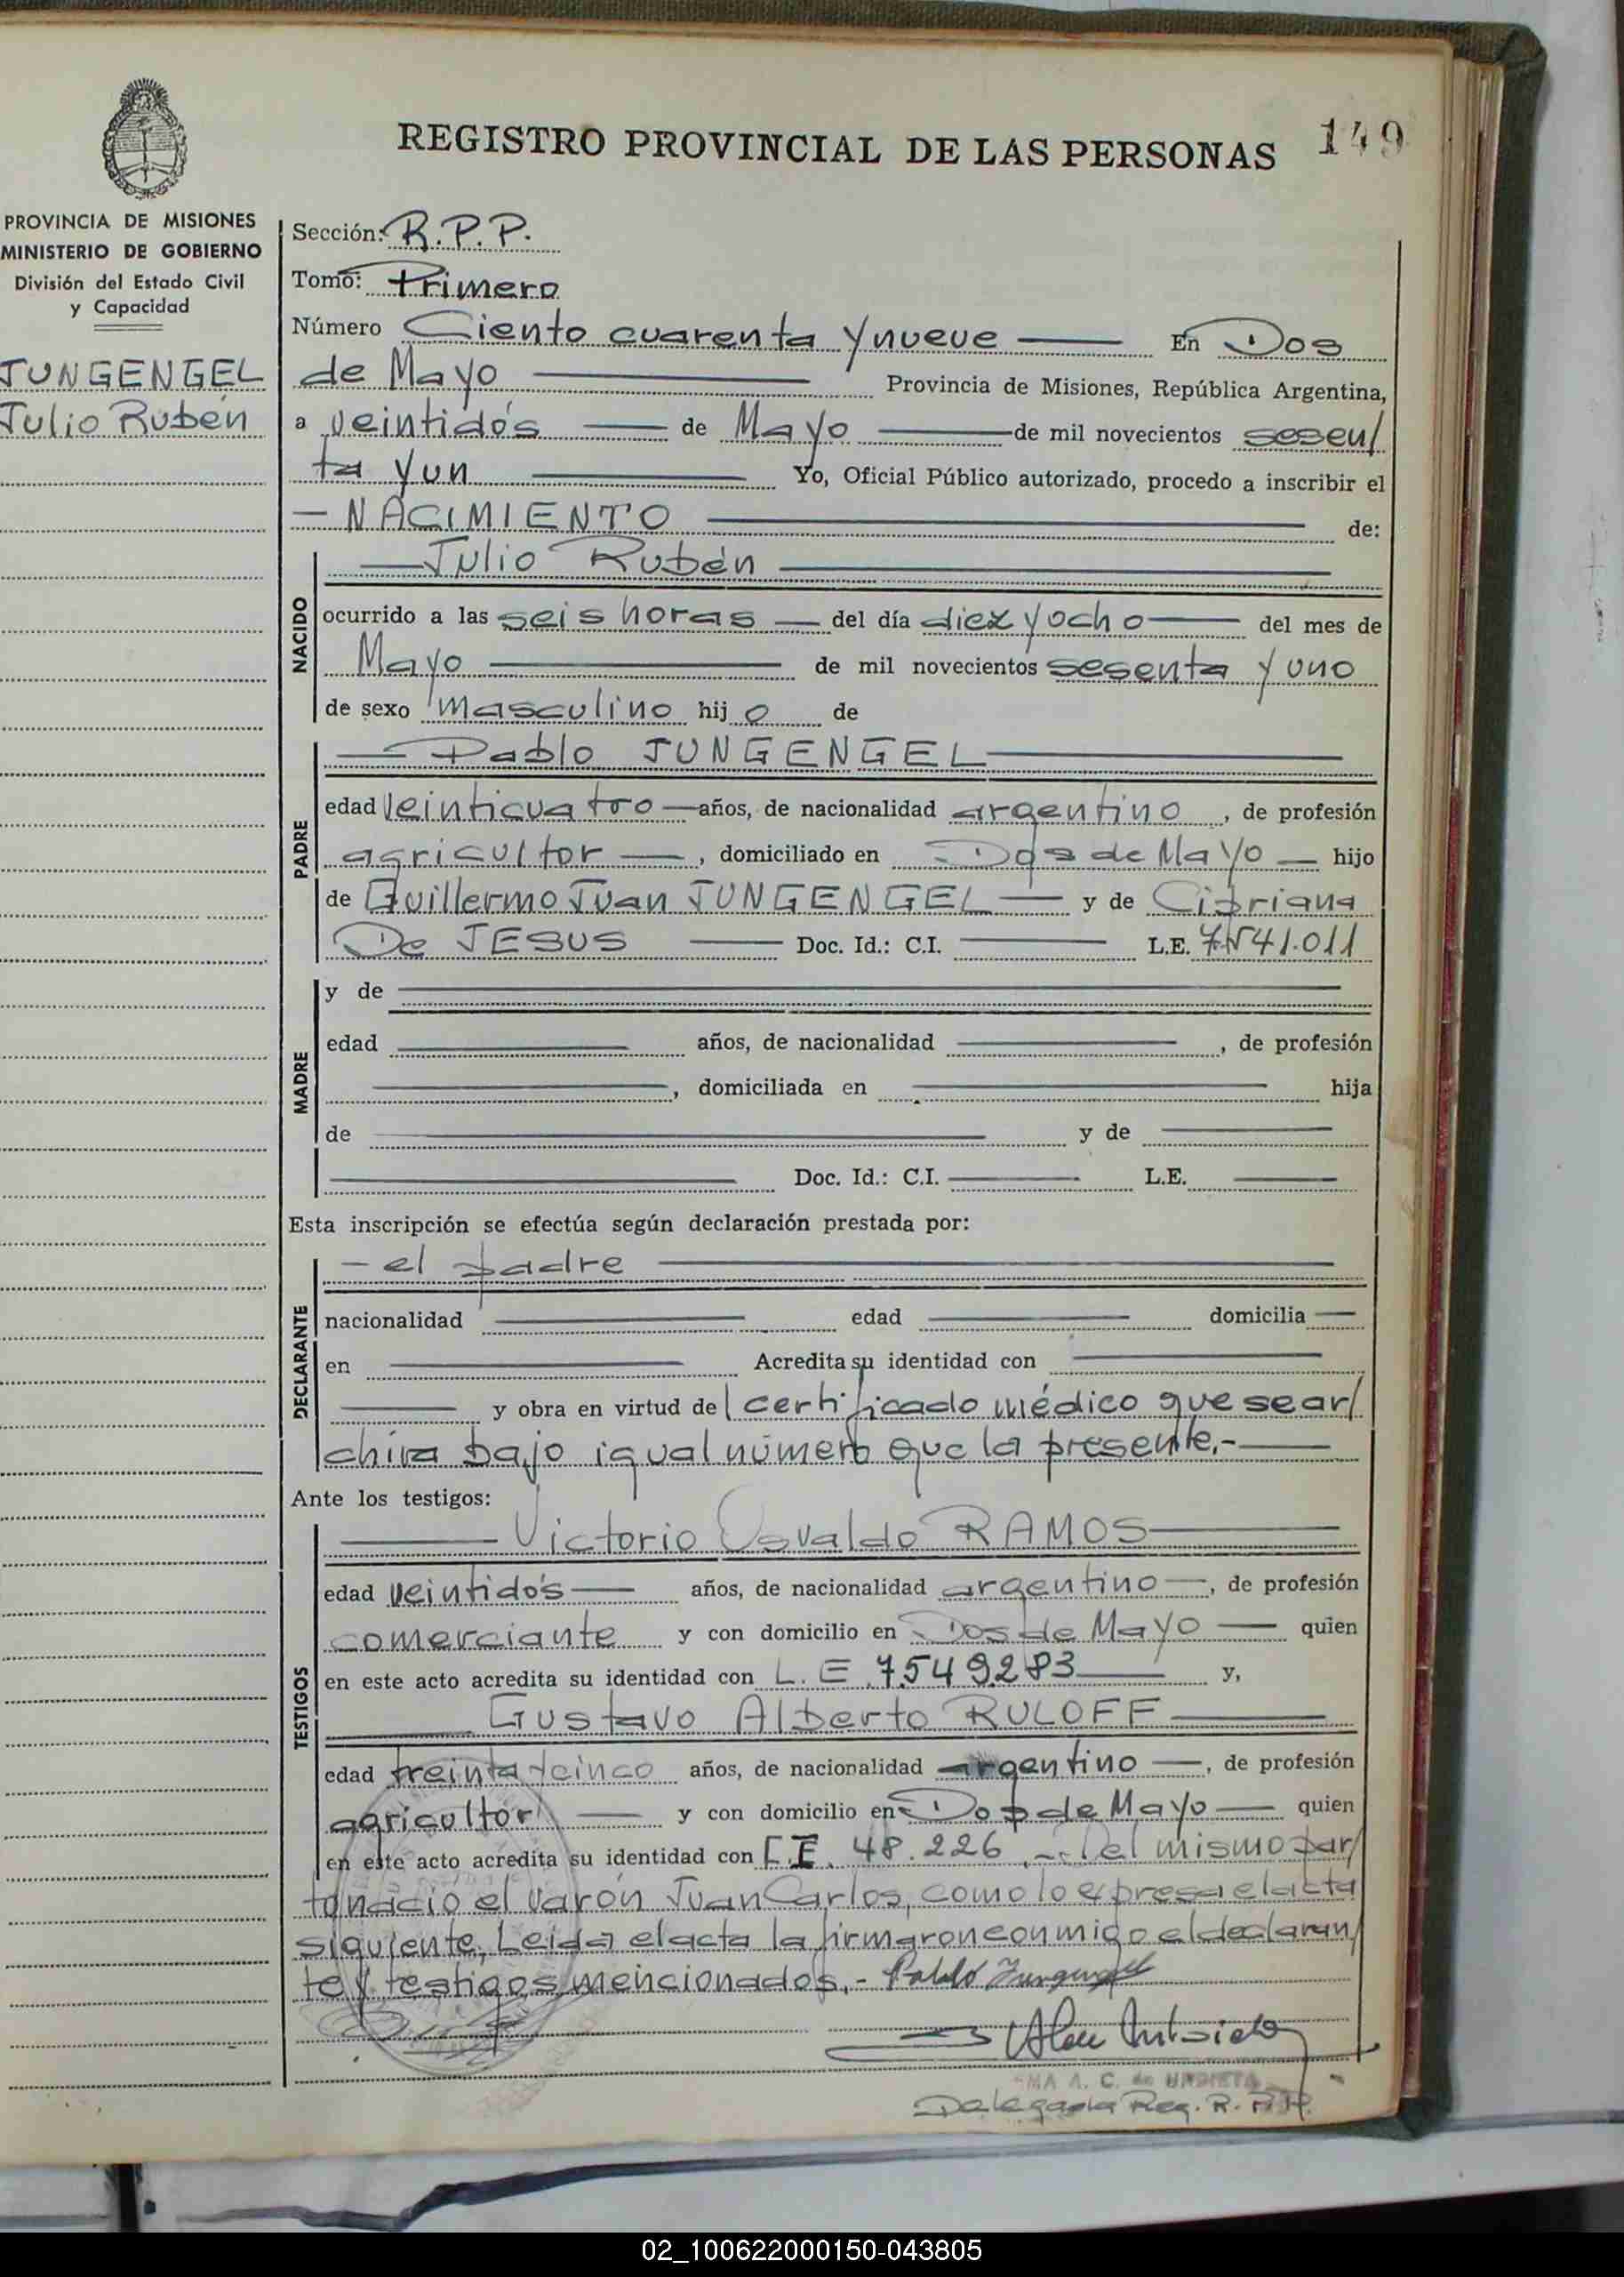 REGISTRO PROVINCIAL DE LAS PERSONAS 149
PROVINCIA DE MISIONES
MINISTERIO DE GOBIERNO
División del Estado Civil
y Capacidad
JUNGENGEL
Julio Rubén
Sección: R.P.P.
Tomo: Primero
Número Ciento cuarenta y nueve En Dos
de Mayo Provincia de Misiones, República Argentina,
a veintidós de Mayo de mil novecientos sesen/
ta y un Yo, Oficial Público autorizado, procedo a inscribir el
- NACIMIENTO de:
NACIDO
Julio Rubén
ocurrido a las seis horas del día diez y ocho del mes de
Mayo de mil novecientos sesenta y uno
de sexo masculino hijo de
PADRE
Pablo JUNGENGEL
edad veinticuatro años, de nacionalidad argentino, de profesión
agricultor, domiciliado en Dos de Mayo hijo
de Guillermo Juan JUNGENGEL y de Cipriana
De JESUS Doc. Id.: C.I. L.E. 7.541.011
MADRE
y de
edad años, de nacionalidad , de profesión
, domiciliada en hija
de y de
Doc. Id.: C.I. L.E.
Esta inscripción se efectúa según declaración prestada por:
DECLARANTE
- el padre
nacionalidad edad domicilia
en Acredita su identidad con
y obra en virtud del certificado médico que se ar/
chiva bajo igual número que la presente.-
Ante los testigos:
TESTIGOS
Victorio Osvaldo RAMOS
edad veintidós años, de nacionalidad argentino, de profesión
comerciante y con domicilio en Dos de Mayo quien
en este acto acredita su identidad con L.E 7.549.283 y,
Gustavo Alberto RULOFF
edad treinta y cinco años, de nacionalidad argentino, de profesión
agricultor y con domicilio en Dos de Mayo quien
en este acto acredita su identidad con C.I. 48.226.- Del mismo par/
to nació el varón Juan Carlos, como lo expresa el acta
siguiente, Leida el acta la firmaron conmigo el declaran/
te y testigos mencionados.- Pablo Jungengel
A. C. de URDIETA
Delegada Reg. R.P.P.
02_100622000150-043805